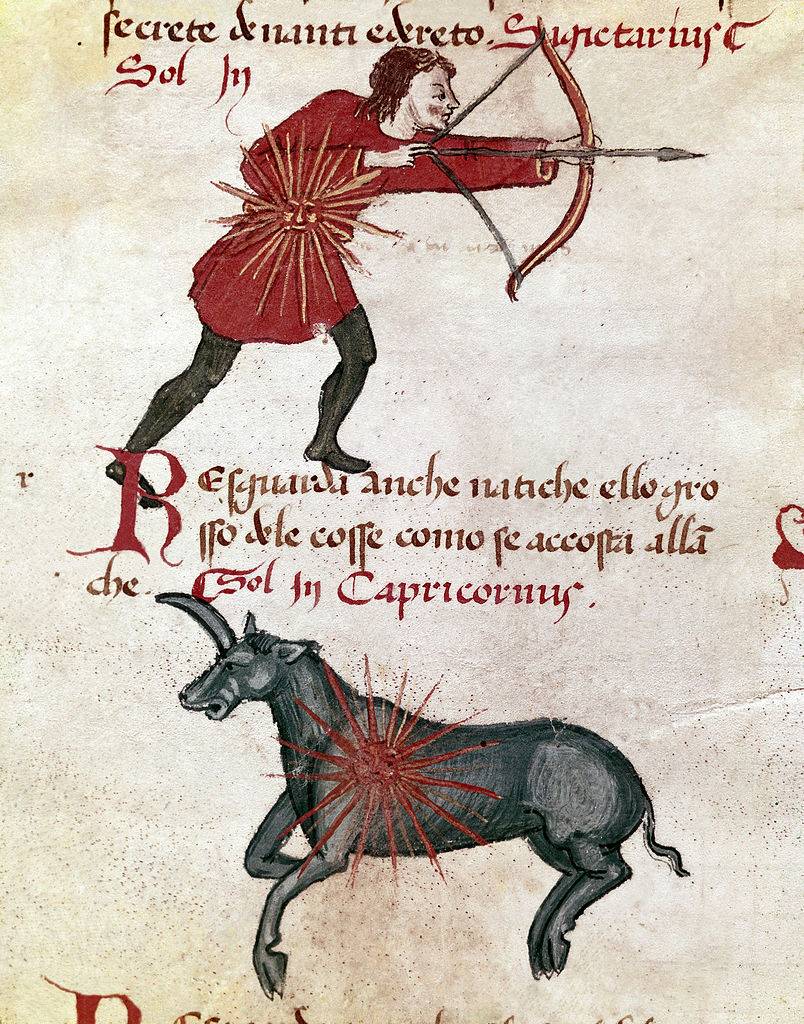 secrete denanti edereto. Sagictarius C
Sol In
r
REsguarda anche natiche ello gro
sso dele cosse como se accosta alla
che. Sol In Capricornus.